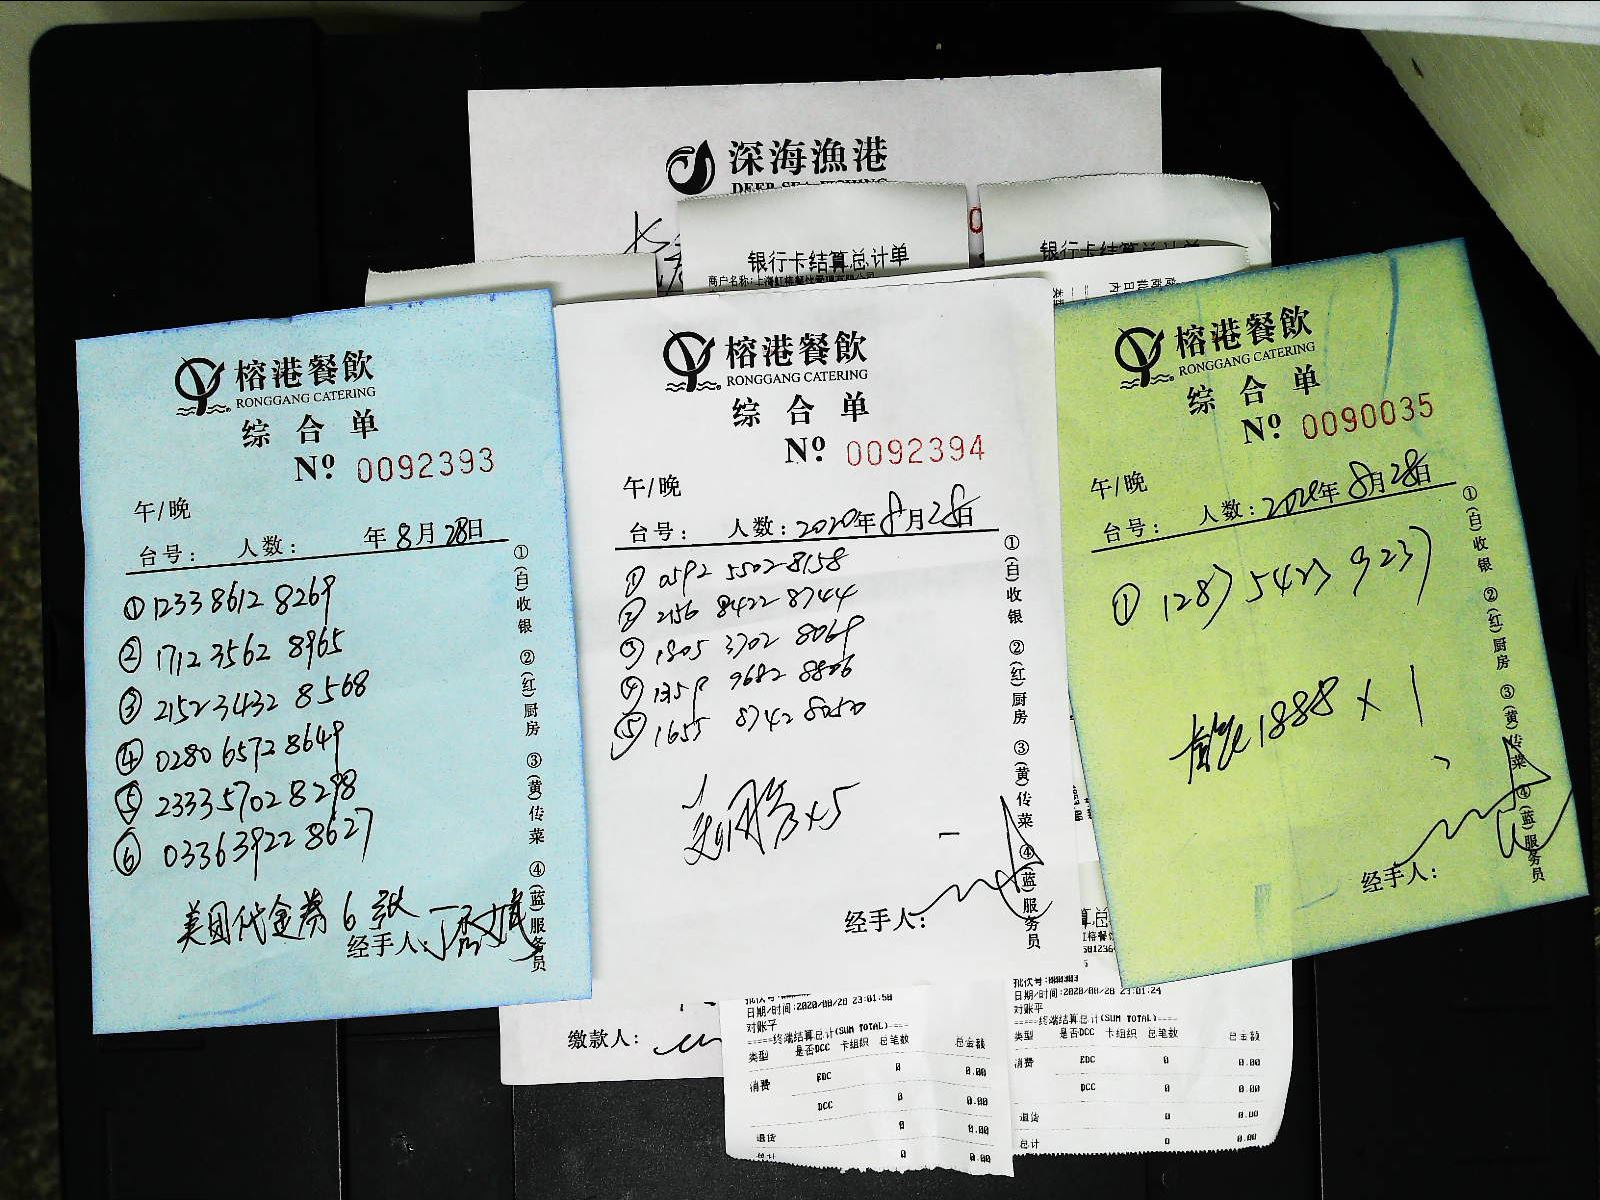 深海漁港
DEEP SEA FISHING
银行卡结算总计单
商户名称:上海虹榕餐饮管理有限公司
银行卡结算总计单
榕港餐飲
RONGGANG CATERING
综合单
Nº 0092393
午/晚
台号: 人数: 年8月28日
①1233 8612 8269
②1712 3562 8965
③2152 3432 8568
④0280 6572 8649
⑤2333 5702 8298
⑥0336 3922 8627
美团代金券6张
经手人:
①(白)收银 ②(红)厨房 ③(黄)传菜 ④(蓝)服务员
榕港餐飲
RONGGANG CATERING
综合单
Nº 0092394
午/晚
台号: 人数: 2020年8月28日
①0592 5502 8158
②2156 8422 8744
③1805 3702 8069
④1359 9682 8806
⑤1655 8742 8050
美团券×5
经手人:
①(白)收银 ②(红)厨房 ③(黄)传菜 ④(蓝)服务员
榕港餐飲
RONGGANG CATERING
综合单
Nº 0090035
午/晚
台号: 人数: 2020年8月28日
①1287 5423 9237
1888×1
经手人:
①(白)收银 ②(红)厨房 ③(黄)传菜 ④(蓝)服务员
缴款人:
日期/时间:2020/08/28 23:01:50
对账平
=====终端结算总计(SUM TOTAL)----
类型 是否DCC 卡组织 总笔数 总金额
消费 EDC 0 0.00
DCC 0 0.00
退货 0 0.00
总计 0 0.00
批次号:000003
日期/时间:2020/08/28 23:01:24
对账平
=====终端结算总计(SUM TOTAL)----
类型 是否DCC 卡组织 总笔数 总金额
消费 EDC 0 0.00
DCC 0 0.00
退货 0 0.00
总计 0 0.00